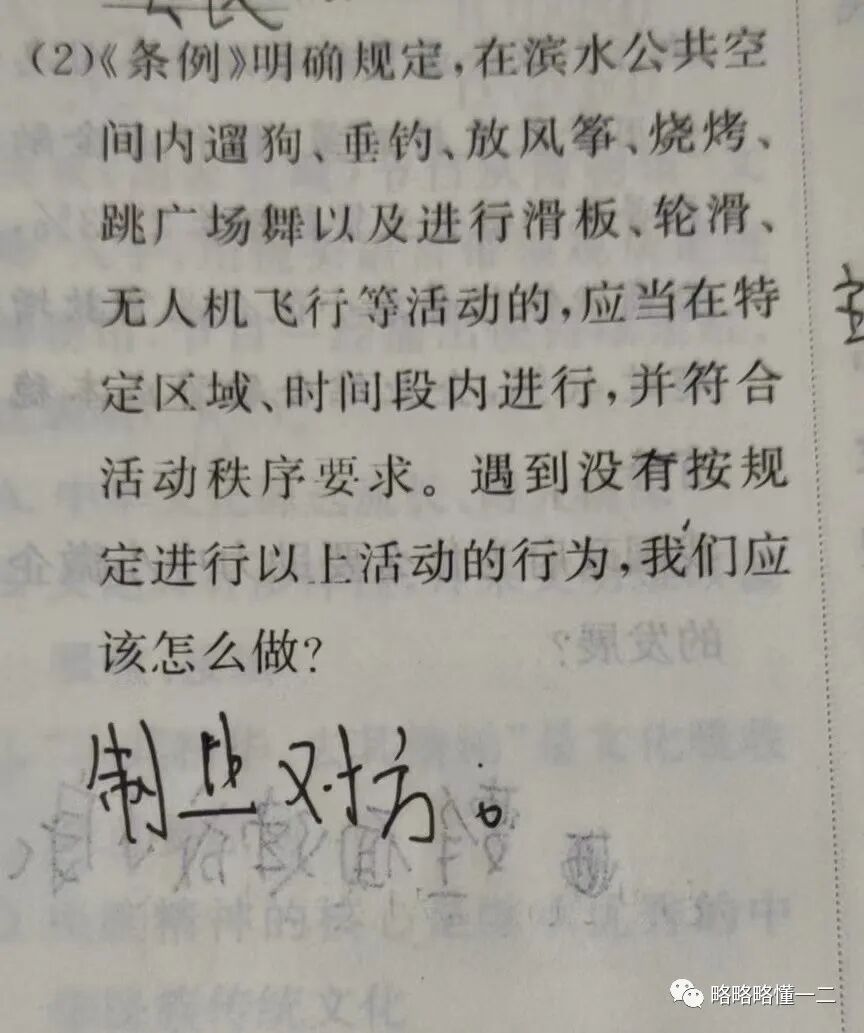 (2)《条例》明确规定,在滨水公共空
间内遛狗、垂钓、放风筝、烧烤、
跳广场舞以及进行滑板、轮滑、
无人机飞行等活动的,应当在特
定区域、时间段内进行,并符合
活动秩序要求。遇到没有按规
定进行以上活动的行为,我们应
该怎么做?
制止对方。
略略略懂一二